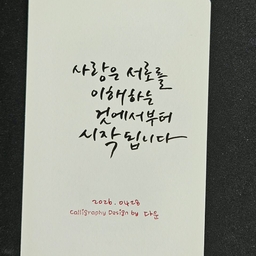 사랑은 서로를
이해하는
것에서부터
시작 됩니다
2026.0428
Calligraphy Design by 다운